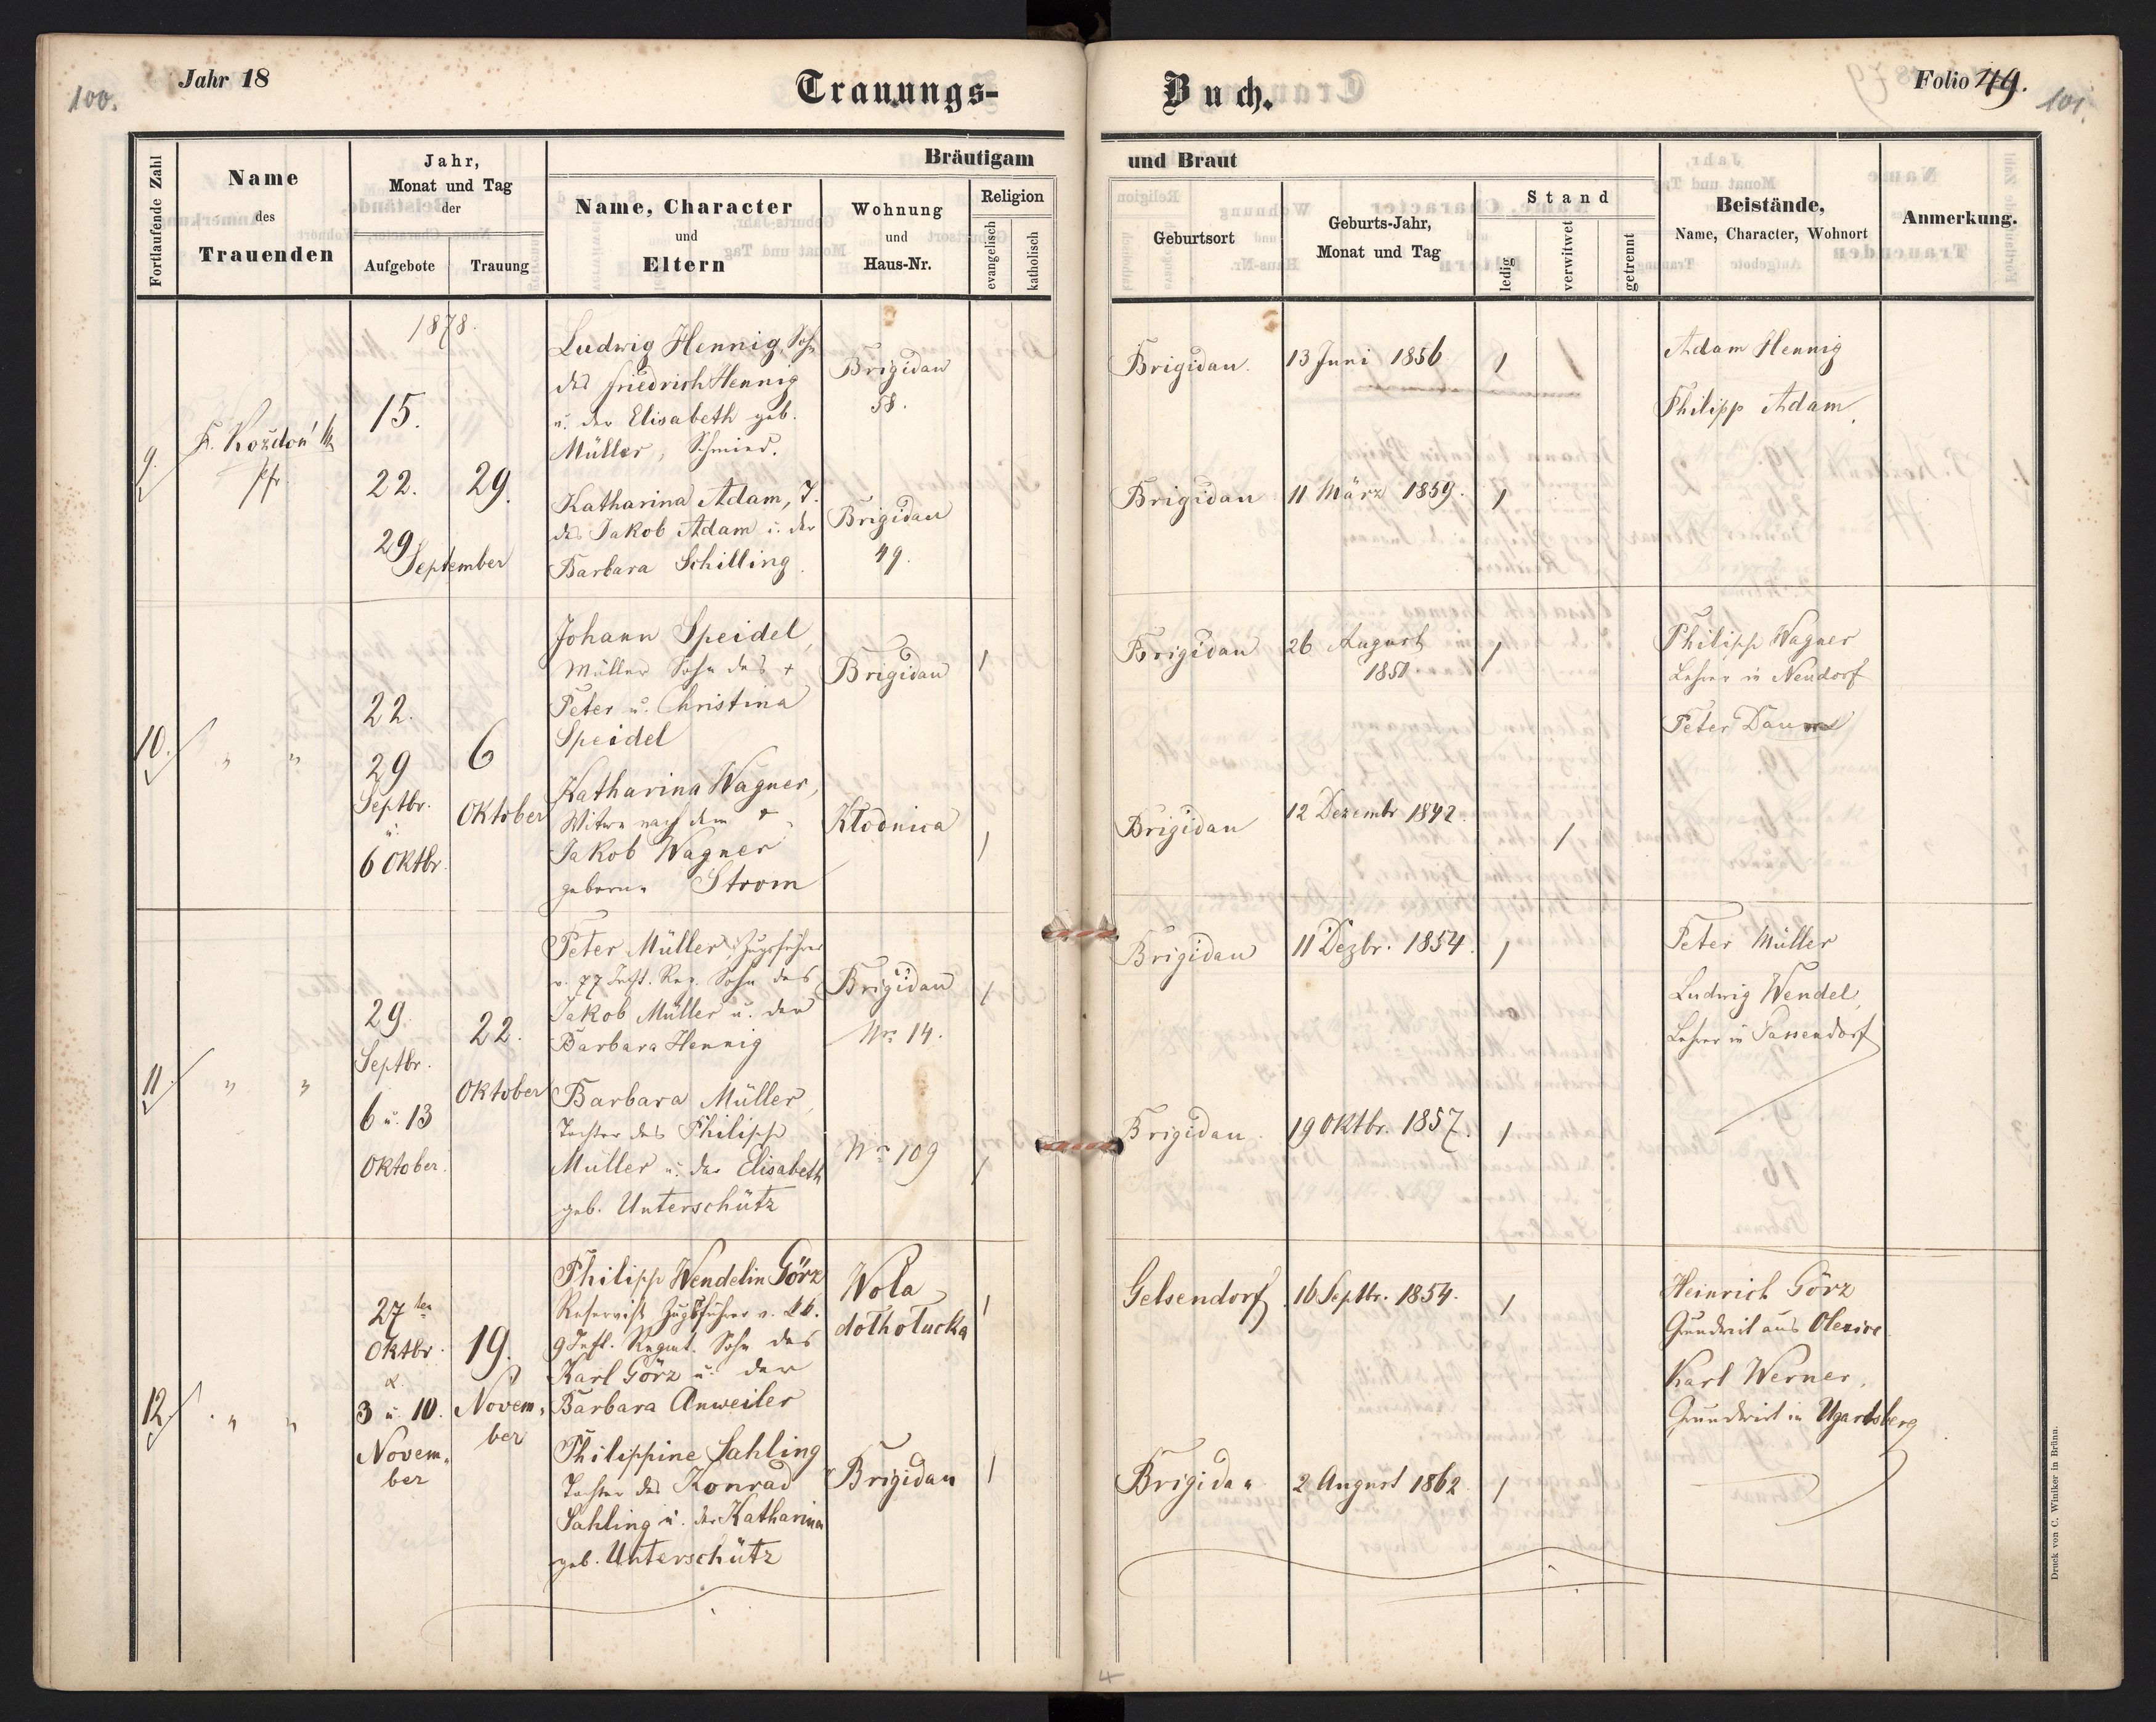 100.
Jahr 18
Trauungs-
Buch.
Folio 49.
101.
Fortlaufende Zahl
Name
des
Trauenden
Jahr,
Monat und Tag
der
Aufgebote
Trauung
Bräutigam
Name, Character
und
Eltern
Wohnung
und
Haus-Nr.
Religion
evangelisch
katholisch
und Braut
Geburtsort
Geburts-Jahr,
Monat und Tag
Stand
ledig
verwitwet
getrennt
Beistände,
Name, Character, Wohnort
Anmerkung.
9.
Koždoń
pfr.
1878.
15.
22.
29
September
29.
Ludwig Hennig, Sohn
des Friedrich Hennig
u. der Elisabeth geb.
Müller, Schmied.
Brigidau
58.
Brigidau.
13 Juni 1856
1
Adam Hennig
Philipp Adam.
Katharina Adam, T.
des Jakob Adam u. der
Barbara Schilling.
Brigidau
49.
Brigidau
11 März 1859.
1
10.
" "
22.
29
Septbr.
u.
6 Oktbr.
6
Oktober
Johann Speidel,
Müller Sohn des +
Peter u. Christina
Speidel
Brigidau
1
Brigidau
26 August
1851
1
Philipp Wagner
Lehrer in Neudorf
Peter Daum
Katharina Wagner,
Witwe nach dem +
Jakob Wagner
geborne Strom
Kłodnica
1
Brigidau
12 Dezembr 1842.
1
11.
" "
29.
Septbr.
6 u. 13
Oktober.
22.
Oktober
Peter Müller, Zugsführer
v. 77 Inft. Reg. Sohn des
Jakob Müller u. der
Barbara Hennig
Brigidau
Nr. 14.
1
Brigidau
11 Dezbr. 1854.
1
Peter Müller
Ludwig Wendel,
Lehrer in
Barbara Müller,
Tochter des Philipp
Müller u. der Elisabeth
geb. Unterschütz
Nr. 109
1
Brigidau.
19 Oktbr. 1857.
1
12.
" "
27ten
Oktbr.
&.
3 u. 10.
Novem-
ber
19.
Novem-
ber
Philipp Wendelin Görz
Reservist Zugsführer v.
9 Inft. Regmt. Sohn des
Karl Görz u. der
Barbara Anweiler
Wola
dołhołucka
1
Gelsendorf
16 Septbr. 1854.
1
Heinrich Görz
Grundwirt aus
Karl Werner,
Grundwirt in Ugartsberg
Philippine Sahling
Tochter des Konrad
Sahling u. der Katharina
geb. Unterschütz
Brigidau
1
Brigidau
2 August 1862
1
4
Druck von C. Winiker in Brünn.